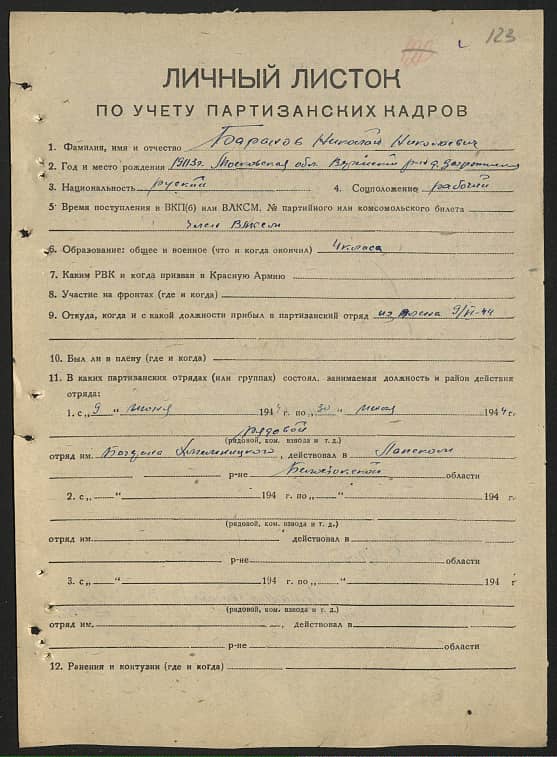 123
ЛИЧНЫЙ ЛИСТОК
ПО УЧЕТУ ПАРТИЗАНСКИХ КАДРОВ
1. Фамилия, имя и отчество Баранов Николай Николаевич
2. Год и место рождения 1913г. Московская обл. Верейский
3. Национальность руский 4. Соцположение рабочий
5. Время поступления в ВКП(б) или ВЛКСМ, № партийного или комсомольского билета
член ВЛКСМ
6. Образование: общее и военное (что и когда окончил) 4 класа
7. Каким РВК и когда призван в Красную Армию
8. Участие на фронтах (где и когда)
9. Откуда, когда и с какой должности прибыл в партизанский отряд из плена 9/VI-44
10. Был ли в плену (где и когда)
11. В каких партизанских отрядах (или группах) состоял, занимаемая должность и район действия
отряда:
1. с „9 “ июня 1944 г по „30 “ июля 1944 г.
рядовой
(рядовой, ком. взвода и т. д.)
отряд им. Богдана Хмельницкого, действовал в Лапском
р-не Белостокской области
2. с „ “ 194 г. по „ “ 194 г.
(рядовой, ком. взвода и т. д.)
отряд им. действовал в
р-не области
3. с „ “ 194 г. по „ “ 194 г
(рядовой, ком. взвода и т. д.)
отряд им. , действовал в
р-не области
12. Ранения и контузии (где и когда)